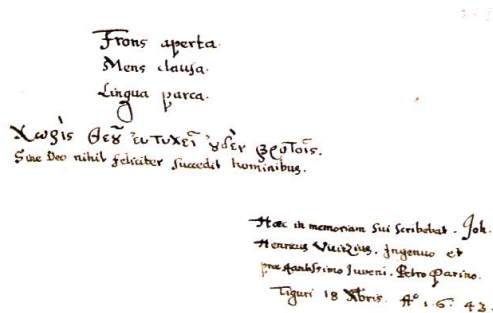 Frons aperta.
Mens clausa.
Lingua parca.
Χωρὶς Θεοῦ εὐτυχεῖ οὐδὲν βροτοῖς.
Sine Deo nihil feliciter succedit hominibus.
Haec in memoriam sui scribebat. Joh.
Henricus Vuirzius. Ingenuo et
praestantissimo Iuveni. Petro Parino.
Tiguri 18 Xbris. Aº 1.6.43.